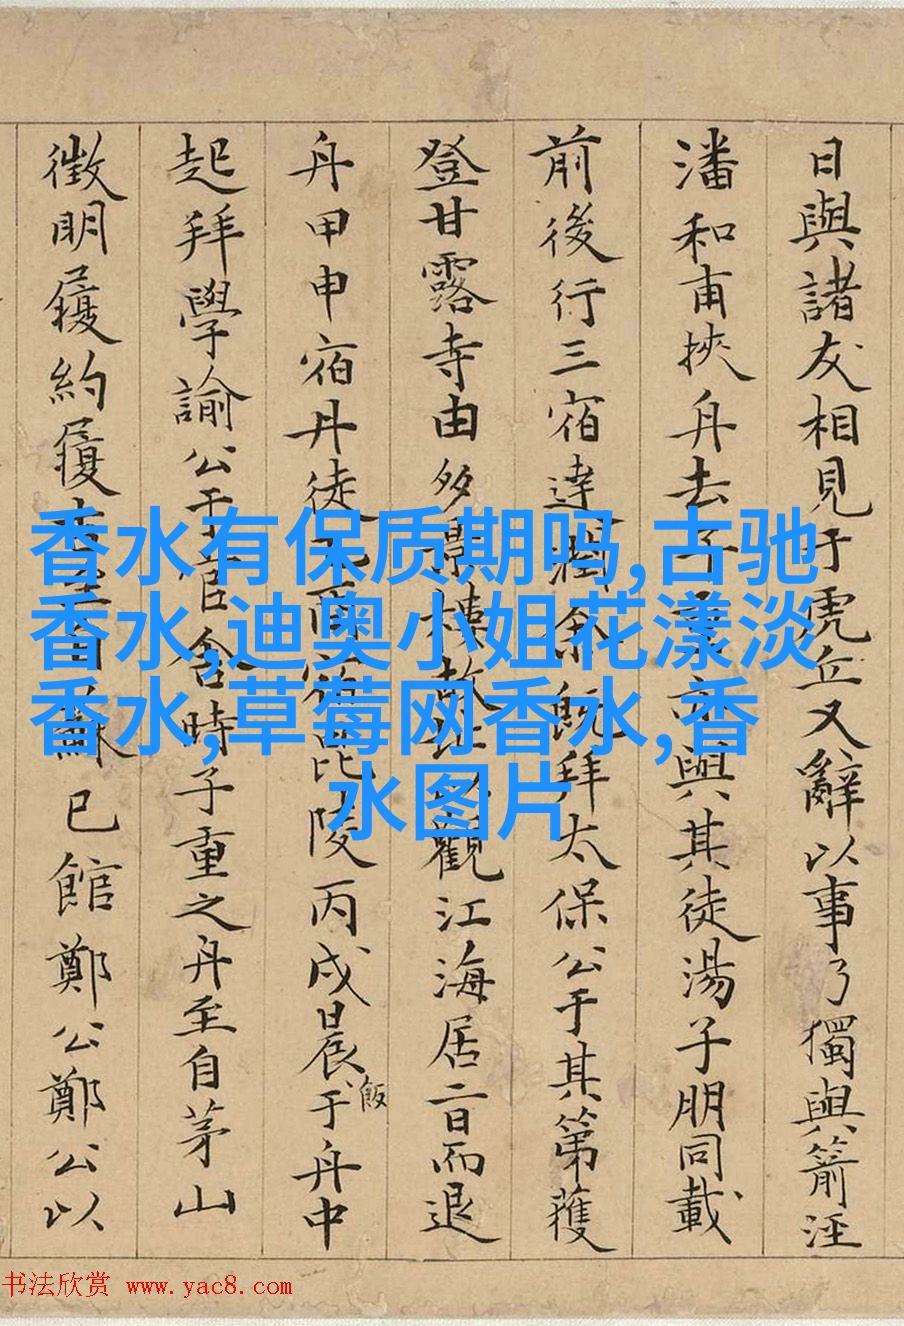 日與諸友相見于虎丘又辭以事乃獨與箭涇
潘和甫挾舟去子重亦與其徒湯子朋同載
前後行三宿達潤余既拜太保公于其第獲
登甘露寺由多景樓故址以觀江海居二日而退
舟甲申宿丹徒 宿毘陵丙戌晨飯于舟中
起拜學諭公于官舍時子重之舟至自茅山
徵明履約履 自 已館鄭公鄭公以
香水有保质期吗,古驰
香水,迪奥小姐花漾淡
香水,草莓网香水,香
水图片
书法欣赏 www.yac8.com